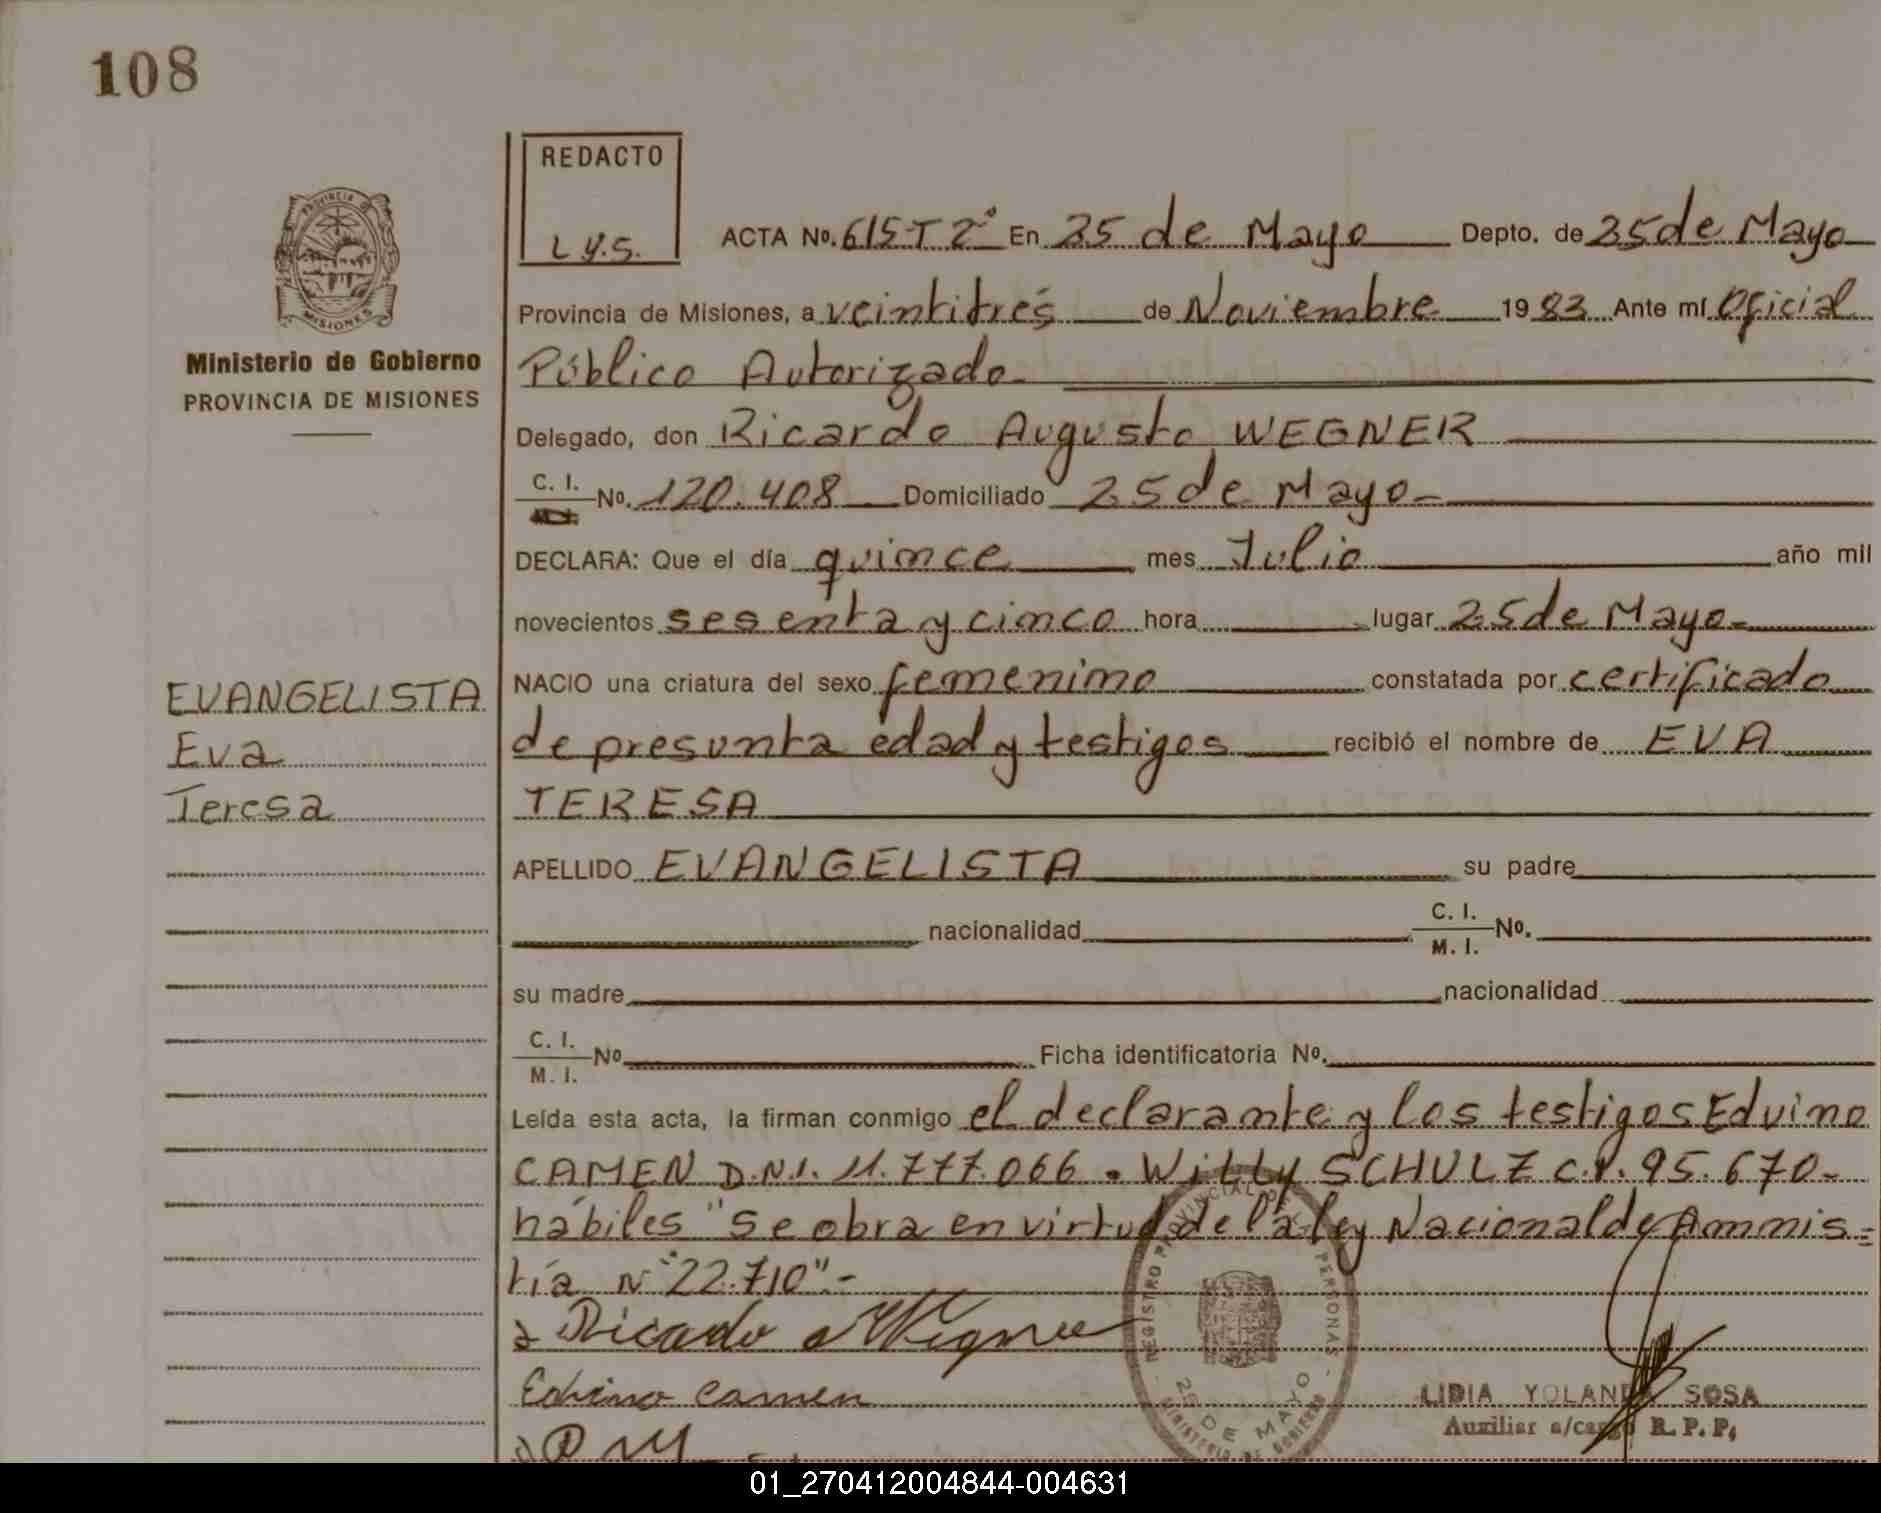 108
REDACTO
L y.S.
ACTA No. 615 T 2° En 25 de Mayo Depto. de 25 de Mayo
PROVINCIA DE
MISIONES
Provincia de Misiones, a veintitrés de Noviembre 1983 Ante mí Oficial
Ministerio de Gobierno
PROVINCIA DE MISIONES
Público Autorizado-
Delegado, don Ricardo Augusto WEGNER
C. I. No. 120.408 Domiciliado 25 de Mayo-
DECLARA: Que el día quince mes Julio año mil
novecientos sesenta y cinco hora lugar 25 de Mayo-
NACIO una criatura del sexo femenino constatada por certificado
EVANGELISTA
Eva
Teresa
de presunta edad y testigos recibió el nombre de EVA
TERESA
APELLIDO EVANGELISTA su padre
nacionalidad C. I. M. I. No.
su madre nacionalidad
C. I. M. I. No Ficha identificatoria No.
Leída esta acta, la firman conmigo el declarante y los testigos Eduino
CAMEN D.N.I. 11.777.066. WILLY SCHULZ C.I. 95.670-
hábiles "Se obra en virtud de la ley Nacional de Ammis=
tía N° 22.710"-
Ricardo A Wegner
Eduino Camen
REGISTRO PROVINCIAL DE LAS PERSONAS
25 DE MAYO
MINISTERIO DE GOBIERNO
LIDIA YOLANDA SOSA
Auxiliar a/cargo R. P. P.
01_270412004844-004631